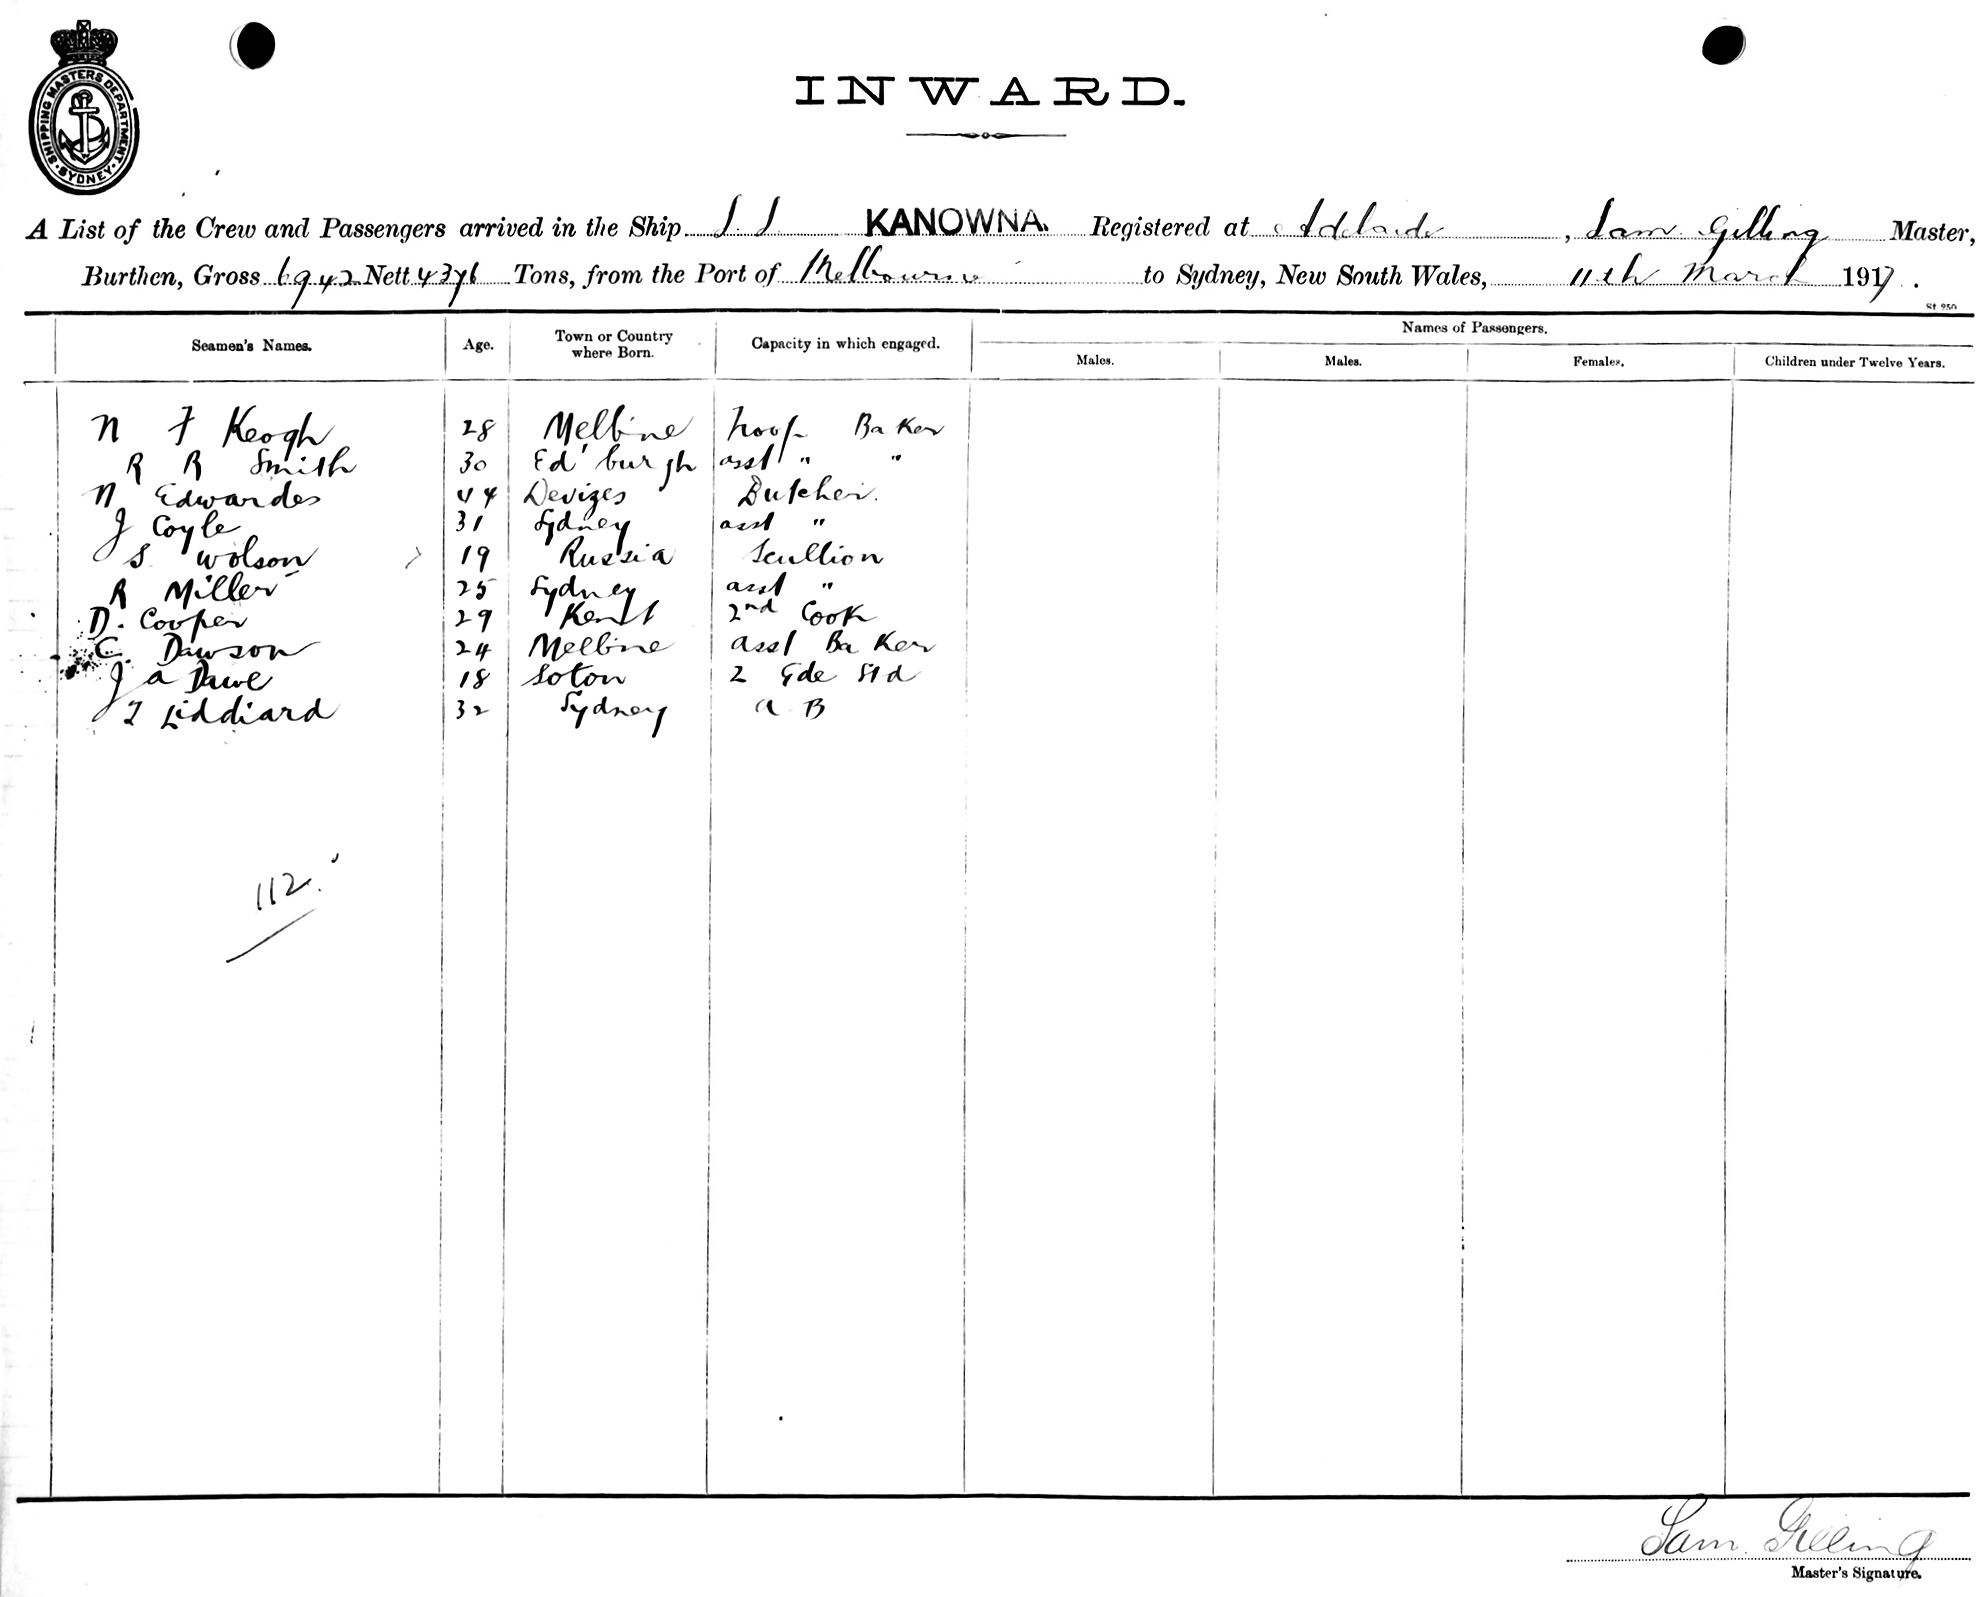 SHIPPING MASTERS DEPARTMENT · SYDNEY ·
INWARD.
A List of the Crew and Passengers arrived in the Ship S.S KANOWNA. Registered at Adelaide, Sam. Gilling Master,
Burthen, Gross 6942 Nett 4376 Tons, from the Port of Melbourne to Sydney, New South Wales, 11th March 1917.
St 950
Names of Passengers.
Seamen's Names. Age. Town or Country where Born. Capacity in which engaged. Males. Males. Females. Children under Twelve Years.
N F Keogh 28 Melbne Troop Baker
R R Smith 30 Ed'burgh asst " "
N Edwardes 44 Devizes Butcher.
J Coyle 31 Sydney asst "
S Wolson 19 Russia Scullion
R Miller 25 Sydney asst "
D. Cooper 29 Kent 2nd Cook
C. Dawson 24 Melbne asst Baker
J a Dawe 18 Soton 2 Gde Std
J Liddiard 32 Sydney a B
112.
Sam. Gilling
Master's Signature.